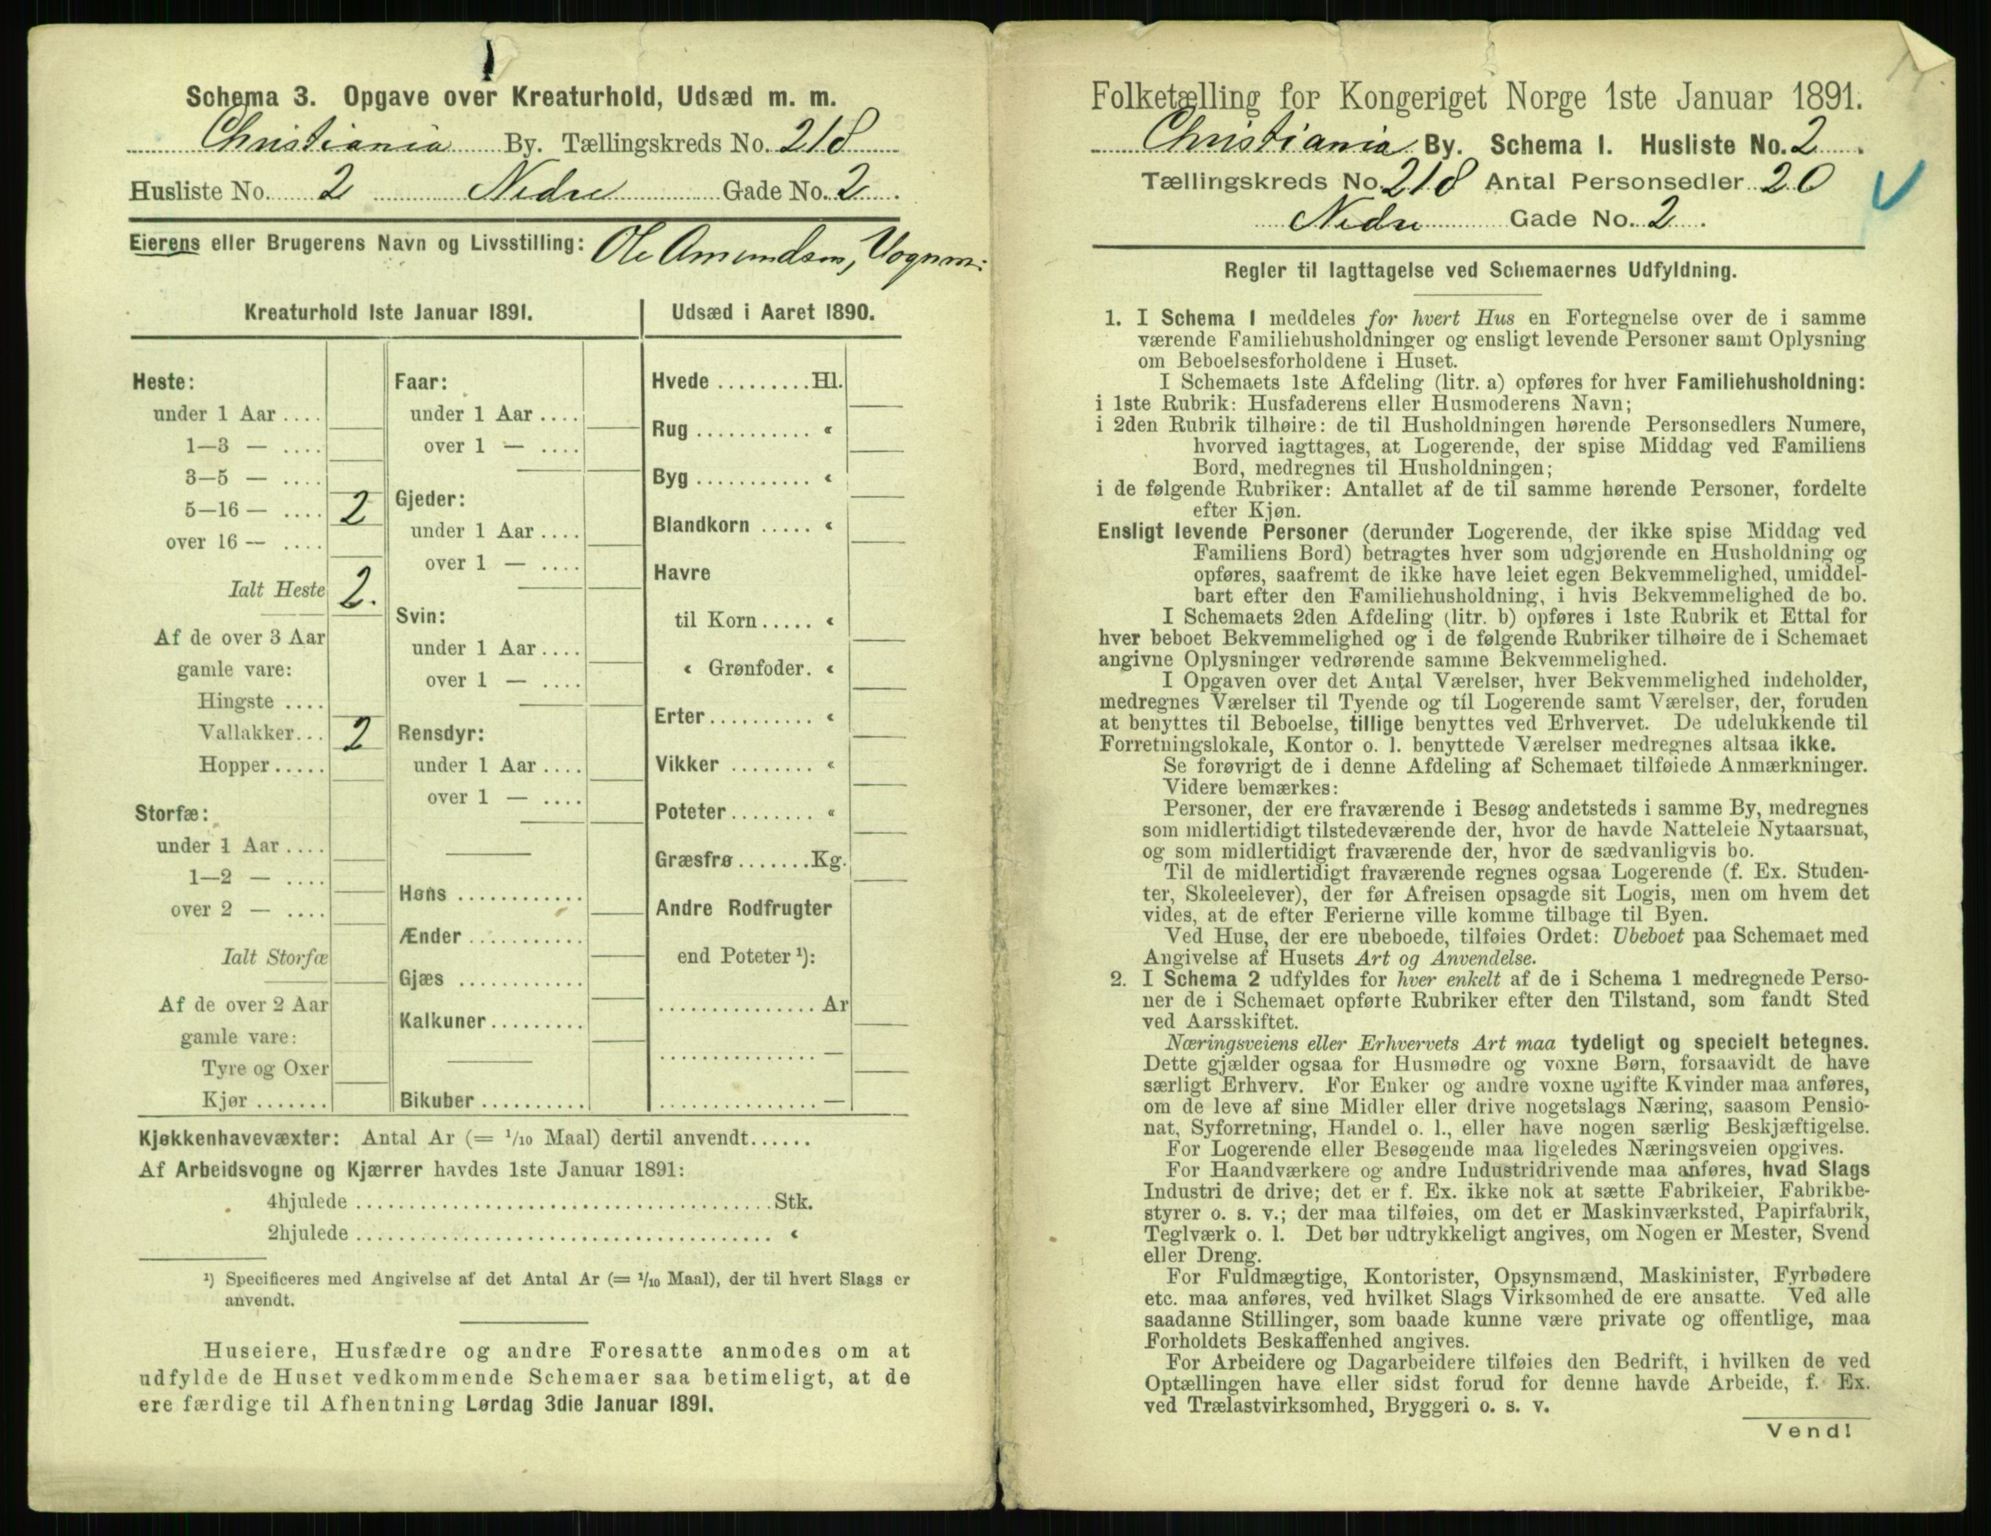 Schema 3. Opgave over Kreaturhold, Udsæd m. m.
Christiania By. Tællingskreds No. 218
Husliste No. 2 Nedre Gade No. 2.
Eierens eller Brugerens Navn og Livsstilling: Ole Amundsen, Vognm:
Kreaturhold 1ste Januar 1891.
Heste:
under 1 Aar ....
1—3 — ....
3—5 — ....
5—16 — .... 2
over 16 — ....
Ialt Heste 2.
Af de over 3 Aar
gamle vare:
Hingste ....
Vallakker... 2
Hopper.....
Storfæ:
under 1 Aar ....
1—2 — ....
over 2 — ....
Ialt Storfæ
Af de over 2 Aar
gamle vare:
Tyre og Oxer
Kjør .......
Faar:
under 1 Aar ....
over 1 — ....
Gjeder:
under 1 Aar ....
over 1 — ....
Svin:
under 1 Aar ....
over 1 — ....
Rensdyr:
under 1 Aar ....
over 1 — ....
Høns ............
Ænder ...........
Gjæs ............
Kalkuner.........
Bikuber ..........
Udsæd i Aaret 1890.
Hvede .........Hl.
Rug ........... «
Byg ........... «
Blandkorn ..... «
Havre
til Korn..... «
« Grønfoder. «
Erter.......... «
Vikker ........ «
Poteter........ «
Græsfrø .......Kg.
Andre Rodfrugter
end Poteter ¹):
............... Ar
............... —
............... —
Kjøkkenhavevæxter: Antal Ar (= 1/10 Maal) dertil anvendt......
Af Arbeidsvogne og Kjærrer havdes 1ste Januar 1891:
4hjulede ........................................ Stk.
2hjulede ........................................ «
¹) Specificeres med Angivelse af det Antal Ar (= 1/10 Maal), der til hvert Slags er
anvendt.
Huseiere, Husfædre og andre Foresatte anmodes om at
udfylde de Huset vedkommende Schemaer saa betimeligt, at de
ere færdige til Afhentning Lørdag 3die Januar 1891.
Folketælling for Kongeriget Norge 1ste Januar 1891.
Christiania By. Schema 1. Husliste No. 2.
Tællingskreds No. 218 Antal Personsedler 20
Nedre Gade No. 2.
Regler til Iagttagelse ved Schemaernes Udfyldning.
1. I Schema 1 meddeles for hvert Hus en Fortegnelse over de i samme
værende Familiehusholdninger og ensligt levende Personer samt Oplysning
om Beboelsesforholdene i Huset.
I Schemaets 1ste Afdeling (litr. a) opføres for hver Familiehusholdning:
i 1ste Rubrik: Husfaderens eller Husmoderens Navn;
i 2den Rubrik tilhøire: de til Husholdningen hørende Personsedlers Numere,
hvorved iagttages, at Logerende, der spise Middag ved Familiens
Bord, medregnes til Husholdningen;
i de følgende Rubriker: Antallet af de til samme hørende Personer, fordelte
efter Kjøn.
Ensligt levende Personer (derunder Logerende, der ikke spise Middag ved
Familiens Bord) betragtes hver som udgjørende en Husholdning og
opføres, saafremt de ikke have leiet egen Bekvemmelighed, umiddel-
bart efter den Familiehusholdning, i hvis Bekvemmelighed de bo.
I Schemaets 2den Afdeling (litr. b) opføres i 1ste Rubrik et Ettal for
hver beboet Bekvemmelighed og i de følgende Rubriker tilhøire de i Schemaet
angivne Oplysninger vedrørende samme Bekvemmelighed.
I Opgaven over det Antal Værelser, hver Bekvemmelighed indeholder,
medregnes Værelser til Tyende og til Logerende samt Værelser, der, foruden
at benyttes til Beboelse, tillige benyttes ved Erhvervet. De udelukkende til
Forretningslokale, Kontor o. l. benyttede Værelser medregnes altsaa ikke.
Se forøvrigt de i denne Afdeling af Schemaet tilføiede Anmærkninger.
Videre bemærkes:
Personer, der ere fraværende i Besøg andetsteds i samme By, medregnes
som midlertidigt tilstedeværende der, hvor de havde Natteleie Nytaarsnat,
og som midlertidigt fraværende der, hvor de sædvanligvis bo.
Til de midlertidigt fraværende regnes ogsaa Logerende (f. Ex. Studen-
ter, Skoleelever), der før Afreisen opsagde sit Logis, men om hvem det
vides, at de efter Ferierne ville komme tilbage til Byen.
Ved Huse, der ere ubeboede, tilføies Ordet: Ubeboet paa Schemaet med
Angivelse af Husets Art og Anvendelse.
2. I Schema 2 udfyldes for hver enkelt af de i Schema 1 medregnede Perso-
ner de i Schemaet opførte Rubriker efter den Tilstand, som fandt Sted
ved Aarsskiftet.
Næringsveiens eller Erhvervets Art maa tydeligt og specielt betegnes.
Dette gjælder ogsaa for Husmødre og voxne Børn, forsaavidt de have
særligt Erhverv. For Enker og andre voxne ugifte Kvinder maa anføres,
om de leve af sine Midler eller drive nogetslags Næring, saasom Pensio-
nat, Syforretning, Handel o. l., eller have nogen særlig Beskjæftigelse.
For Logerende eller Besøgende maa ligeledes Næringsveien opgives.
For Haandværkere og andre Industridrivende maa anføres, hvad Slags
Industri de drive; det er f. Ex. ikke nok at sætte Fabrikeier, Fabrikbe-
styrer o. s. v.; der maa tilføies, om det er Maskinværksted, Papirfabrik,
Teglværk o. l. Det bør udtrykkeligt angives, om Nogen er Mester, Svend
eller Dreng.
For Fuldmægtige, Kontorister, Opsynsmænd, Maskinister, Fyrbødere
etc. maa anføres, ved hvilket Slags Virksomhed de ere ansatte. Ved alle
saadanne Stillinger, som baade kunne være private og offentlige, maa
Forholdets Beskaffenhed angives.
For Arbeidere og Dagarbeidere tilføies den Bedrift, i hvilken de ved
Optællingen have eller sidst forud for denne havde Arbeide, f. Ex.
ved Trælastvirksomhed, Bryggeri o. s. v.
Vend!